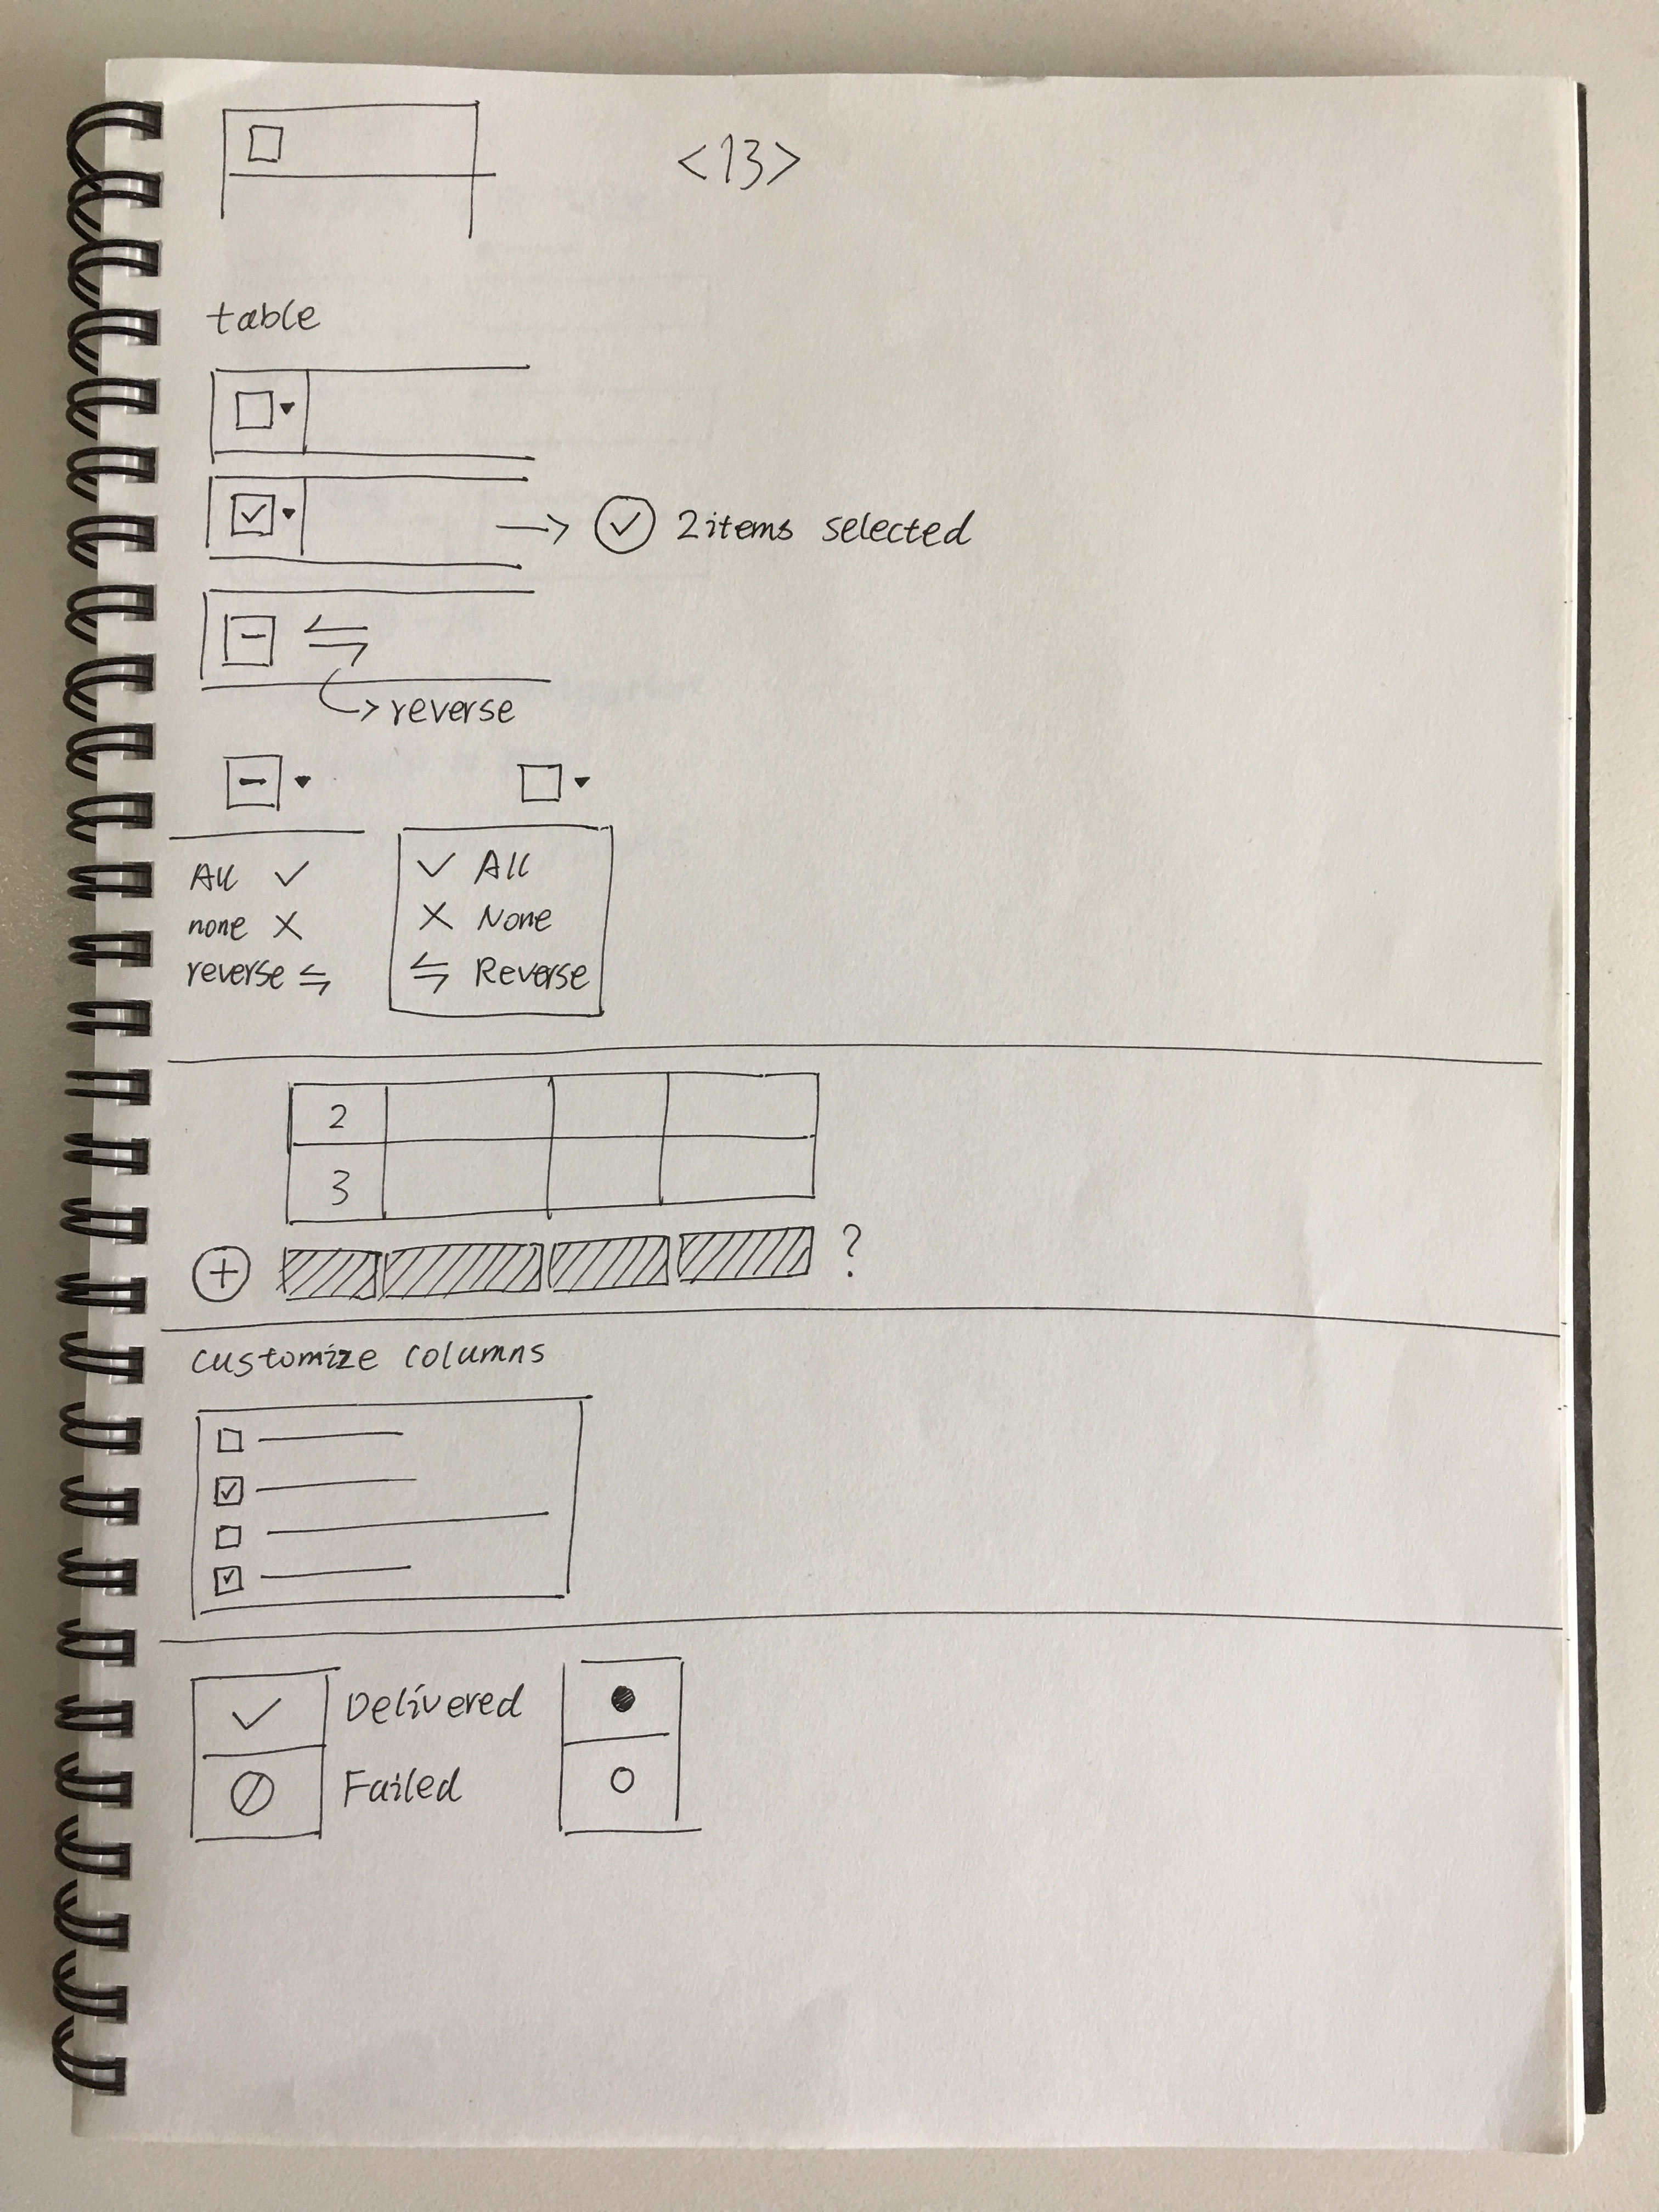 <13>
table
2items selected
reverse
All
none
reverse
All
None
Reverse
2
3
?
customize columns
Delivered
Failed